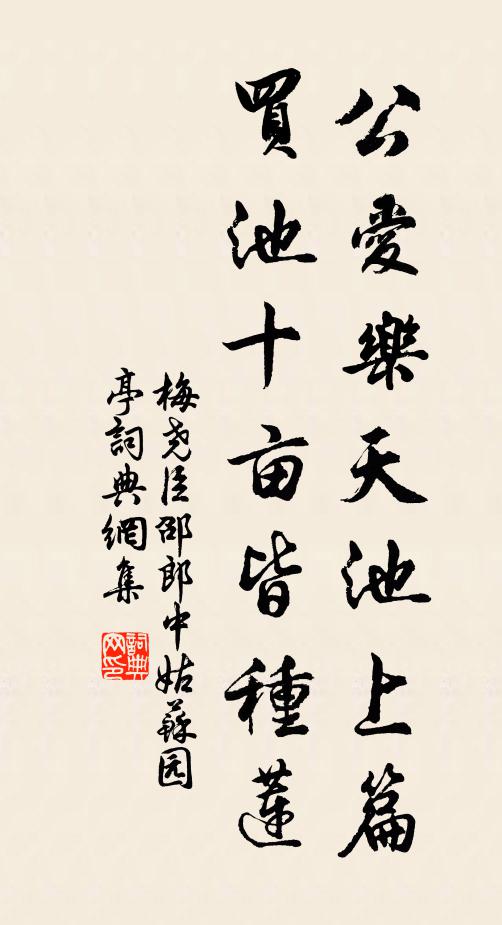 公愛樂天池上篇
買池十亩皆種蓮
梅尧臣邵郎中姑蘇园
亭詞典網集
詞典网印